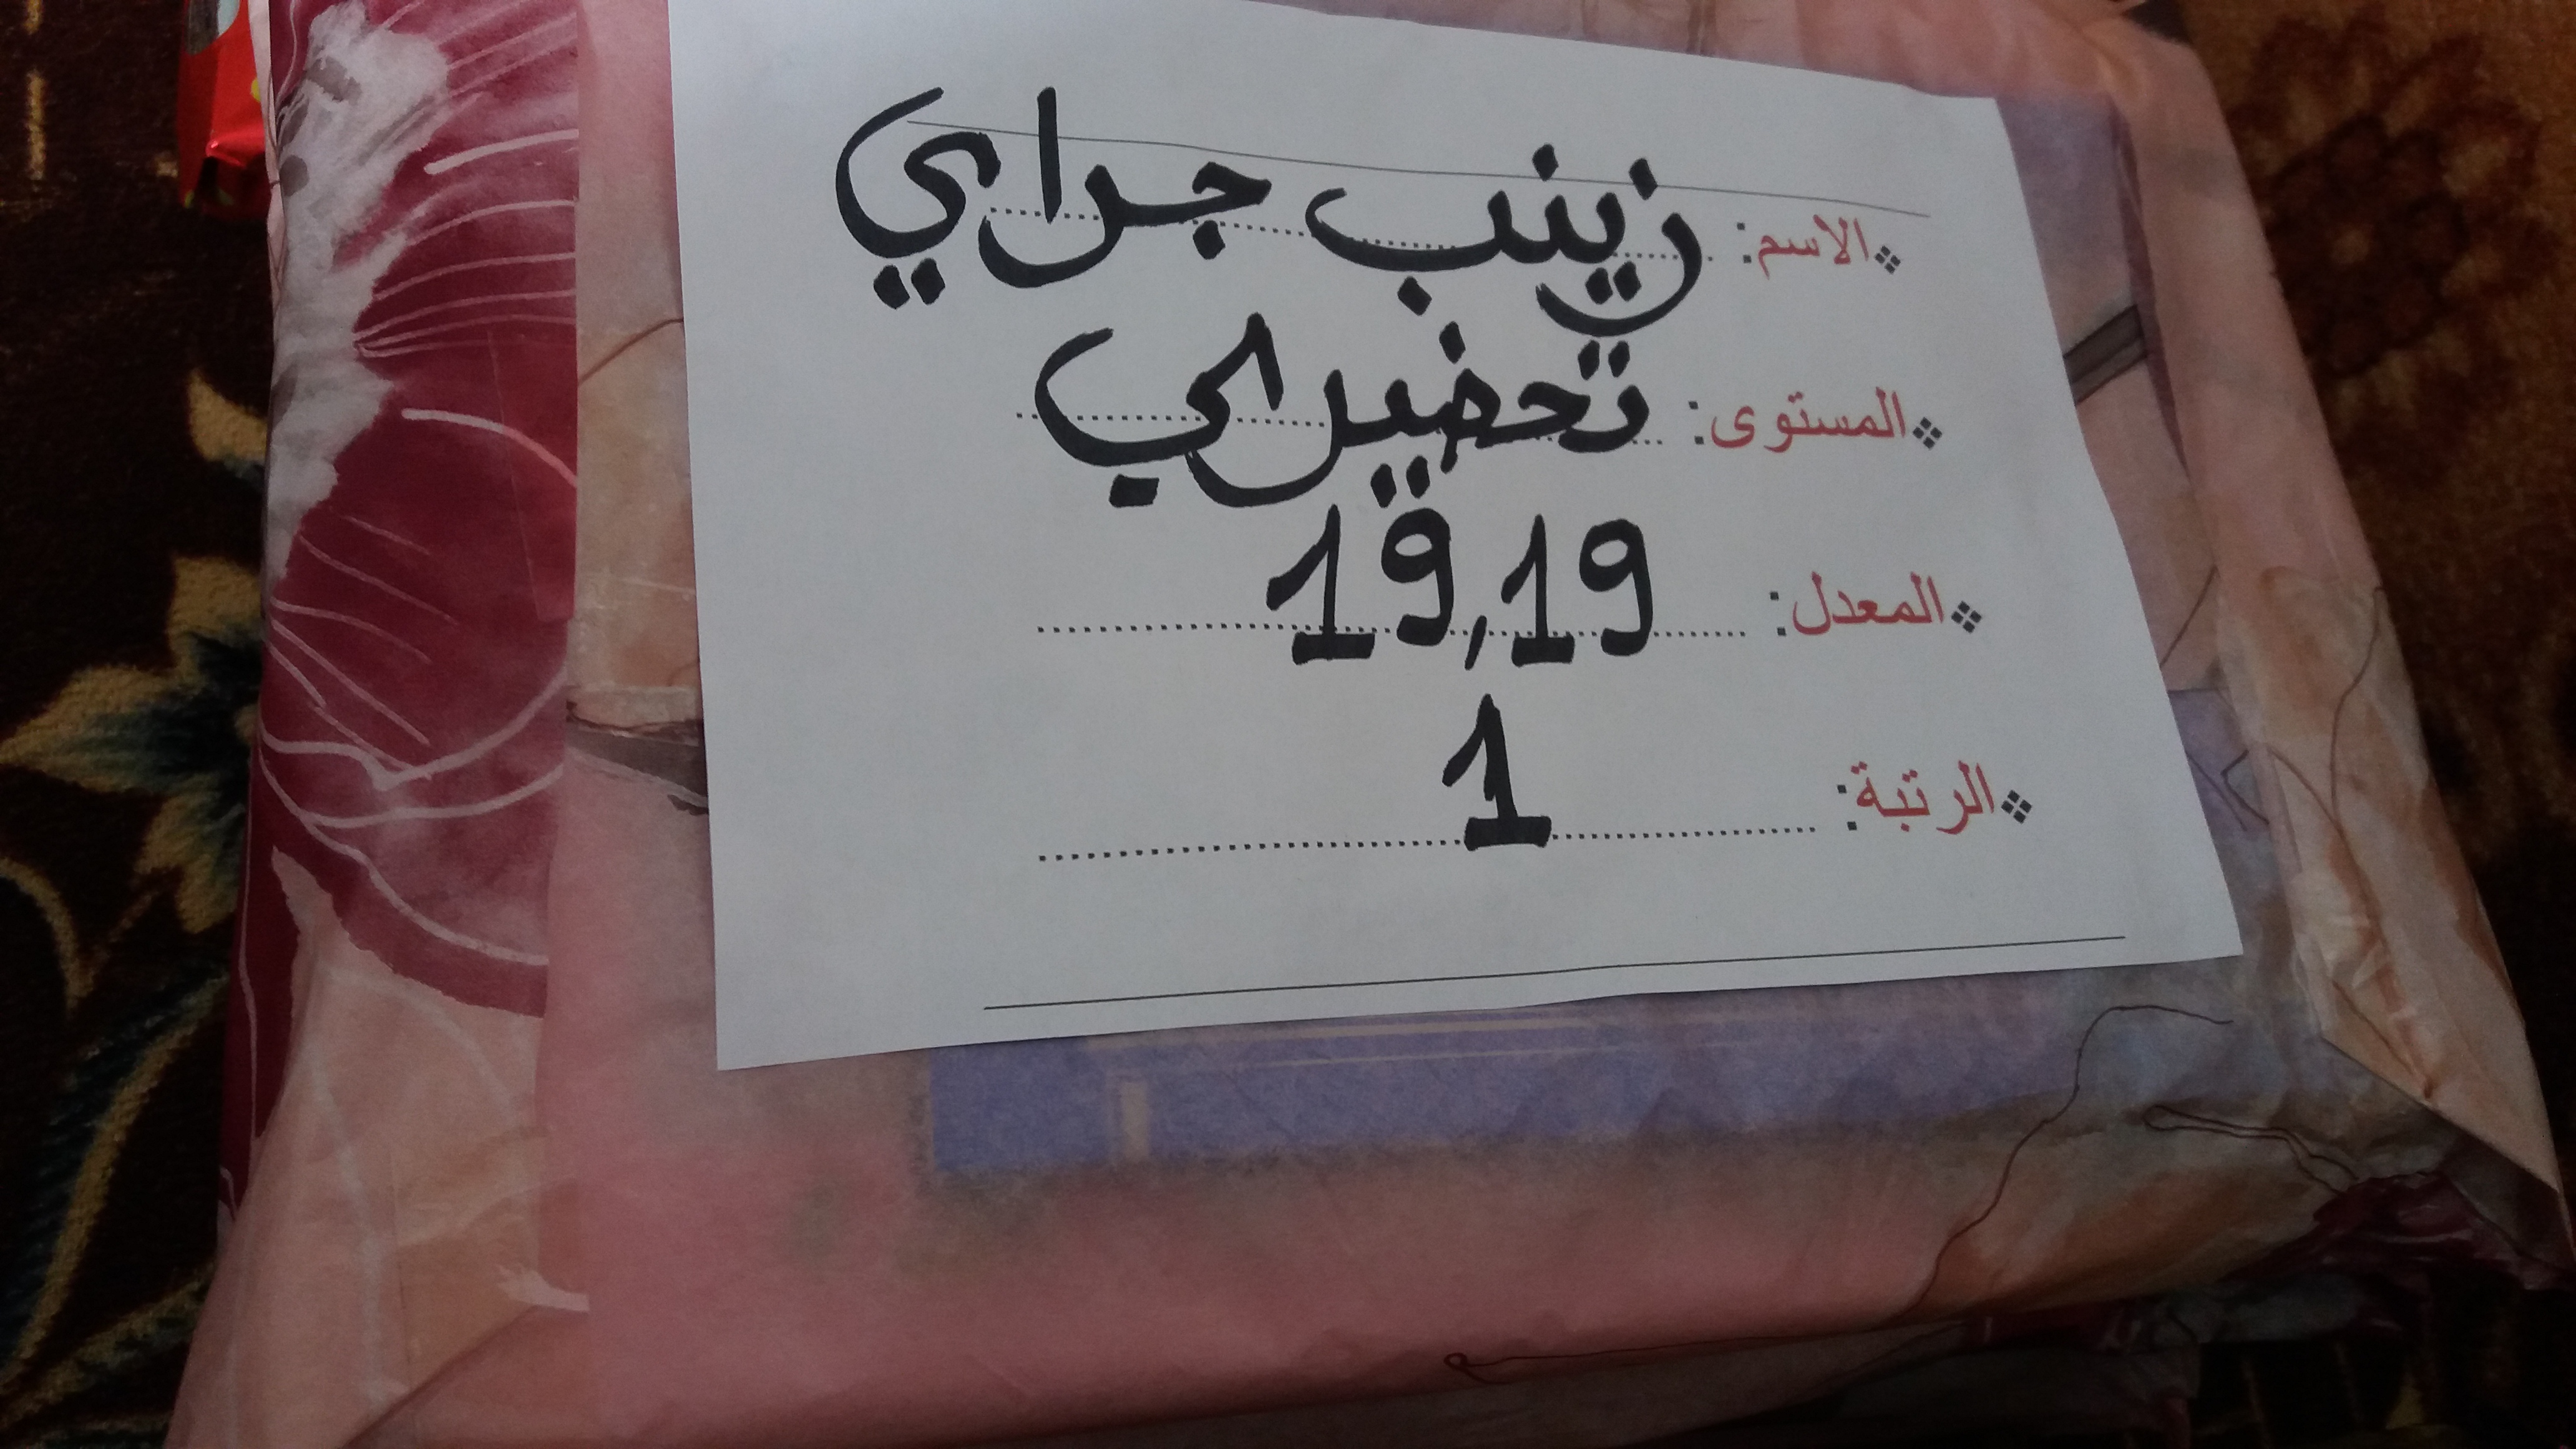 الاسم: زينب جراي
المستوى: تحضيري
المعدل: 19,19
الرتبة: 1